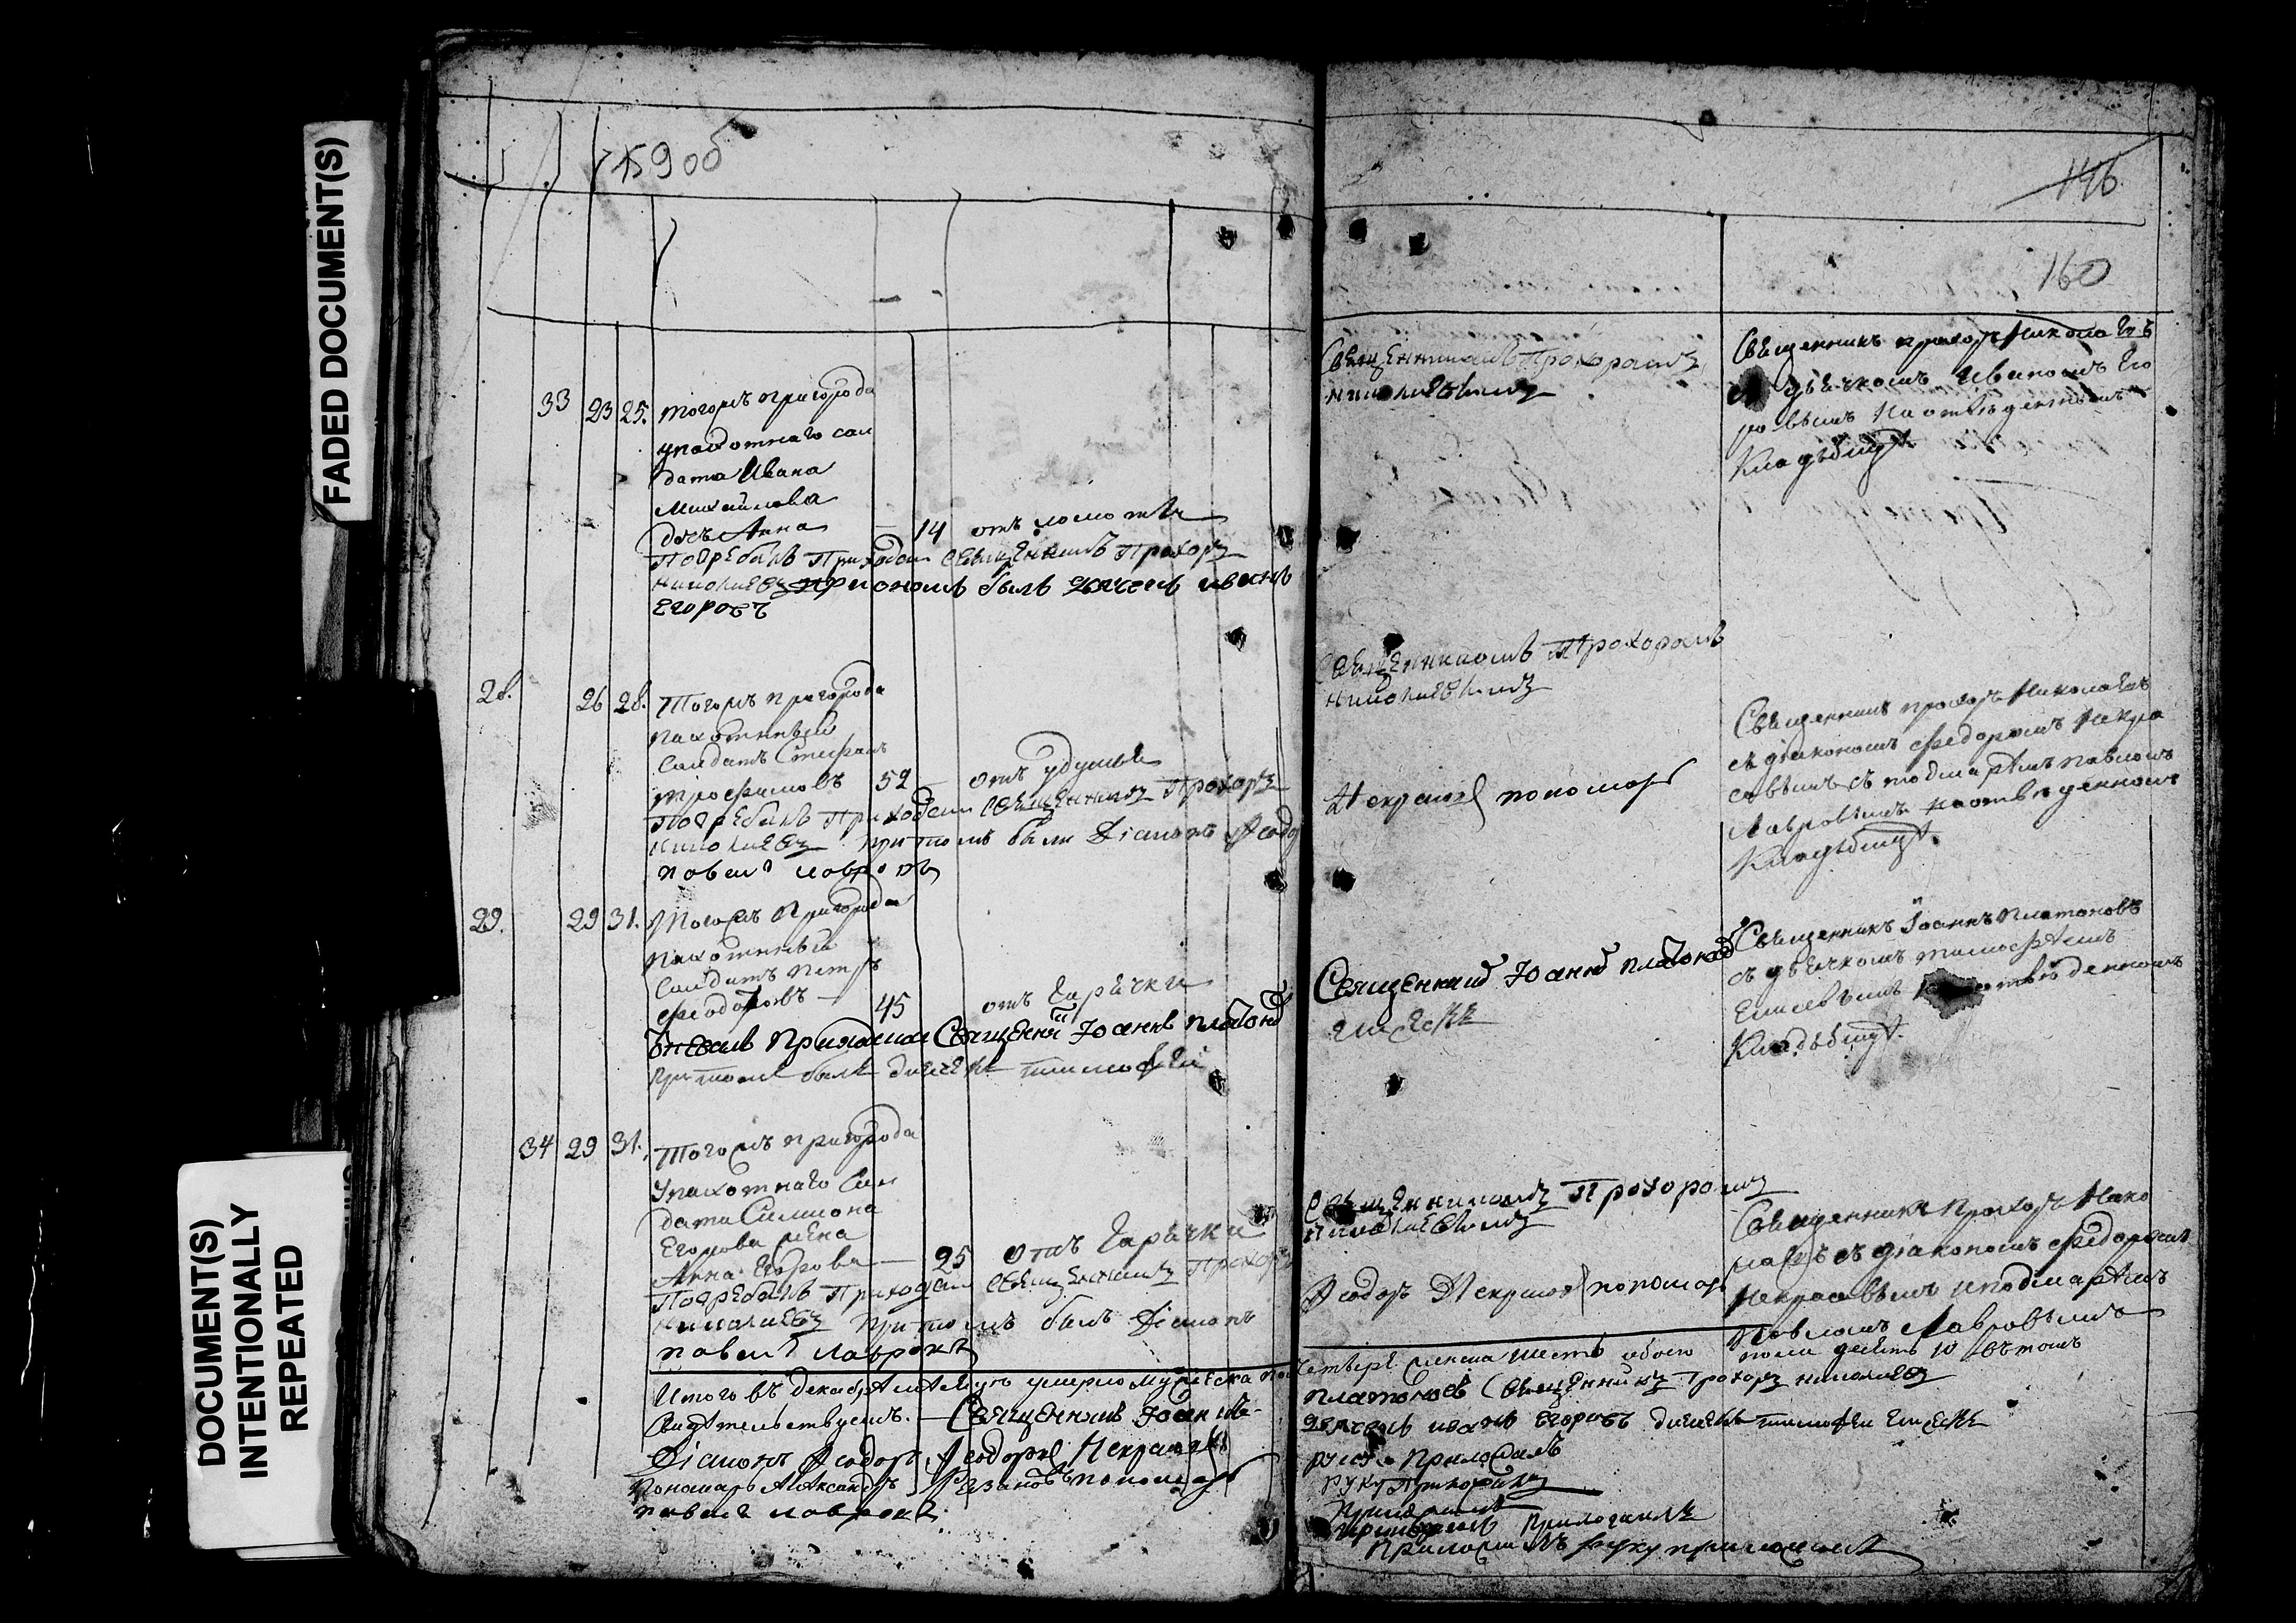 FADED DOCUMENT(S)
DOCUMENT(S)
INTENTIONALLY
REPEATED
159 об
146
160
33 23 25. Тогожъ пригорода
упахотнаго сол
дата Ивана
Михайлова
дочь Анна — 14 отъ ломоты
Погребалъ Приходски Священникъ Прохоръ
Николаевъ при ономъ былъ дячекъ иванъ
Егоровъ
Священникомъ Прохоромъ
николаевымъ
Священникъ прохоръ Николаевъ
дьячкомъ Иваномъ Его
ровымъ на отведенномъ
Кладбищѣ
28. 26 28. Тогожъ пригорода
пахотный
Солдатъ Стефанъ
трофимовъ 52 — отъ удушья
Погребалъ Приходски Священникъ Прохоръ
николаевъ при томъ были Діаконъ Ѳеодоръ
павелъ лавровъ
Священникомъ Прохоромъ
николаевымъ
Некрасовъ пономарь
Священникъ прохоръ Николаевъ
съ діакономъ Федоромъ Некра
совымъ съ пономаремъ павломъ
Лавровымъ на отведенномъ
Кладбищѣ.
29. 29 31. Тогожъ Пригорода
пахотный
Солдатъ петръ
федотовъ — 45 отъ горячки
Приходски Священникъ Іоаннъ платоновъ
при томъ былъ дьячекъ тимофеи
Священникъ Іоаннъ платоновъ
елисеевъ
Священникъ Іоаннъ Платоновъ
съ дьячкомъ тимофѣемъ
Елисевымъ на отведенномъ
Кладбищѣ.
34 29 31. Тогожъ пригорода
Упахотнаго Сол
дата Симиона
Егорова жена
Анна Егорова — 25 отъ горячки
Погребалъ Приходски Священникъ Прохоръ
николаевъ при томъ былъ Діаконъ
павелъ лавровъ
Священникомъ Прохоромъ
николаевымъ
Ѳеодоръ Некрасовъ пономарь
Священникъ Прохоръ Нико
лаевъ съ діакономъ Федоромъ
Некрасовымъ и пономаремъ
Павломъ Лавровымъ
Итого въ декабрѣ умерло мужеска пола четыре женска шесть обоего пола десять 10 въ томъ
Свидѣтельствуемъ. — Священникъ Іоаннъ платоновъ Священникъ Прохоръ николаевъ
Діаконъ Ѳеодоръ Некрасовъ дячекъ иванъ Егоровъ дьячекъ тимофеи елисеевъ
руку Приложилъ
Пономарь Александръ Рязановъ пономарь
руку приложилъ
павелъ лавровъ
приложилъ руку приложилъ